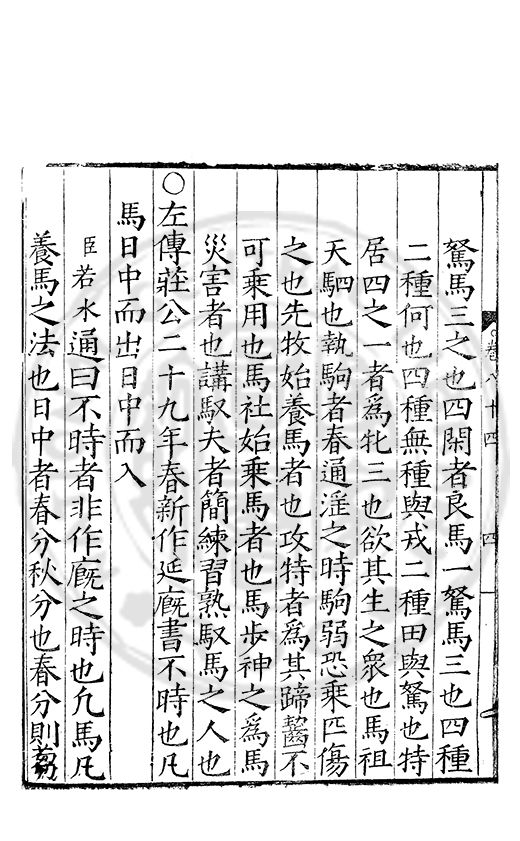 駑馬三之也四閑者良馬一駑馬三也四種
二種何也四種無種與戎二種田與駑也特
居四之一者爲牝三也欲其生之衆也馬祖
天駟也執駒者春通淫之時駒弱恐乗匹傷
之也先牧始養馬者也攻特者爲其蹄齧不
可乗用也馬社始乗馬者也馬步神之爲馬
災害者也講馭夫者簡練習熟馭馬之人也
○左傳莊公二十九年春新作延廐書不時也凡
馬日中而出日中而入
臣若水通曰不時者非作廐之時也凢馬凡
養馬之法也日中者春分秋分也春分則
卷八十四
四